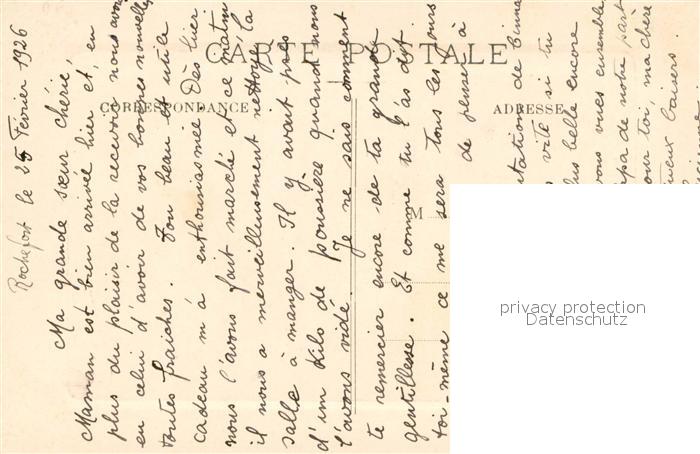 CARTE POSTALE
CORRESPONDANCE
ADRESSE
M
Rochefort le 25 Février 1926
Ma grande sœur chérie,
Maman est bien arrivée hier et, en
plus du plaisir de la recevoir nous avons
en celui d'avoir de vos bonnes nouvelles
toutes fraiches. Ton beau et utile
cadeau m'a enthousiasmée Dès hier
nous l'avons fait marché et ce matin
il nous a merveilleusement nettoyé la
salle à manger. Il y avait près
d'un kilo de poussière quand nous
l'avons vidé. Je ne sais comment
te remercier encore de ta grande
gentillesse. Et comme tu l'as dit
toi-même ce me sera tous les jours
de penser à
vite si tu
plus belle encore
vous vues ensemble
papa de notre part
pour toi, ma chère
baisers.
privacy protection
Datenschutz